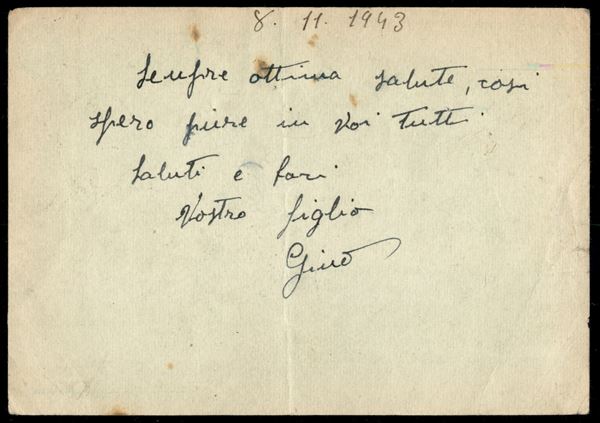 8. 11. 1943
Sempre ottima salute, così
spero pure in voi tutti.
Saluti e baci
Vostro figlio
Gino